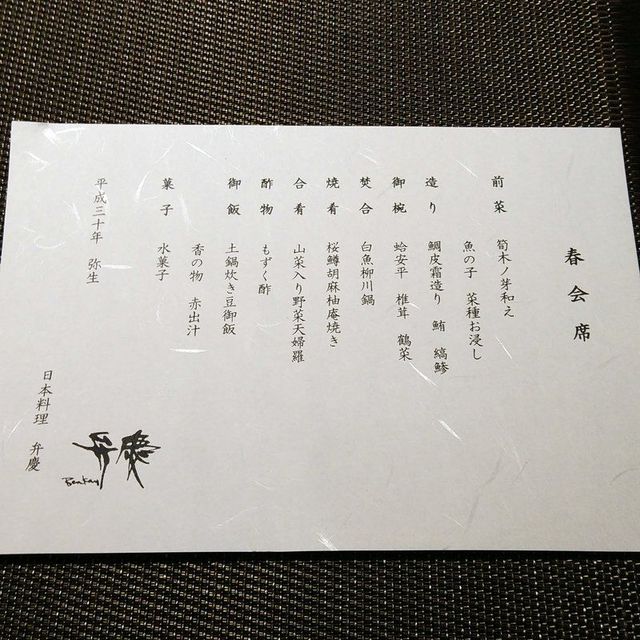 春会席
前菜　筍木ノ芽和え
魚の子　菜種お浸し
造り　鯛皮霜造り　鮪　縞鯵
御椀　蛤安平　椎茸　鶴菜
焚合　白魚柳川鍋
焼肴　桜鱒胡麻柚庵焼き
合肴　山菜入り野菜天婦羅
酢物　もずく酢
御飯　土鍋炊き豆御飯
香の物　赤出汁
菓子　水菓子
平成三十年　弥生
日本料理　弁慶
弁慶
Benkay